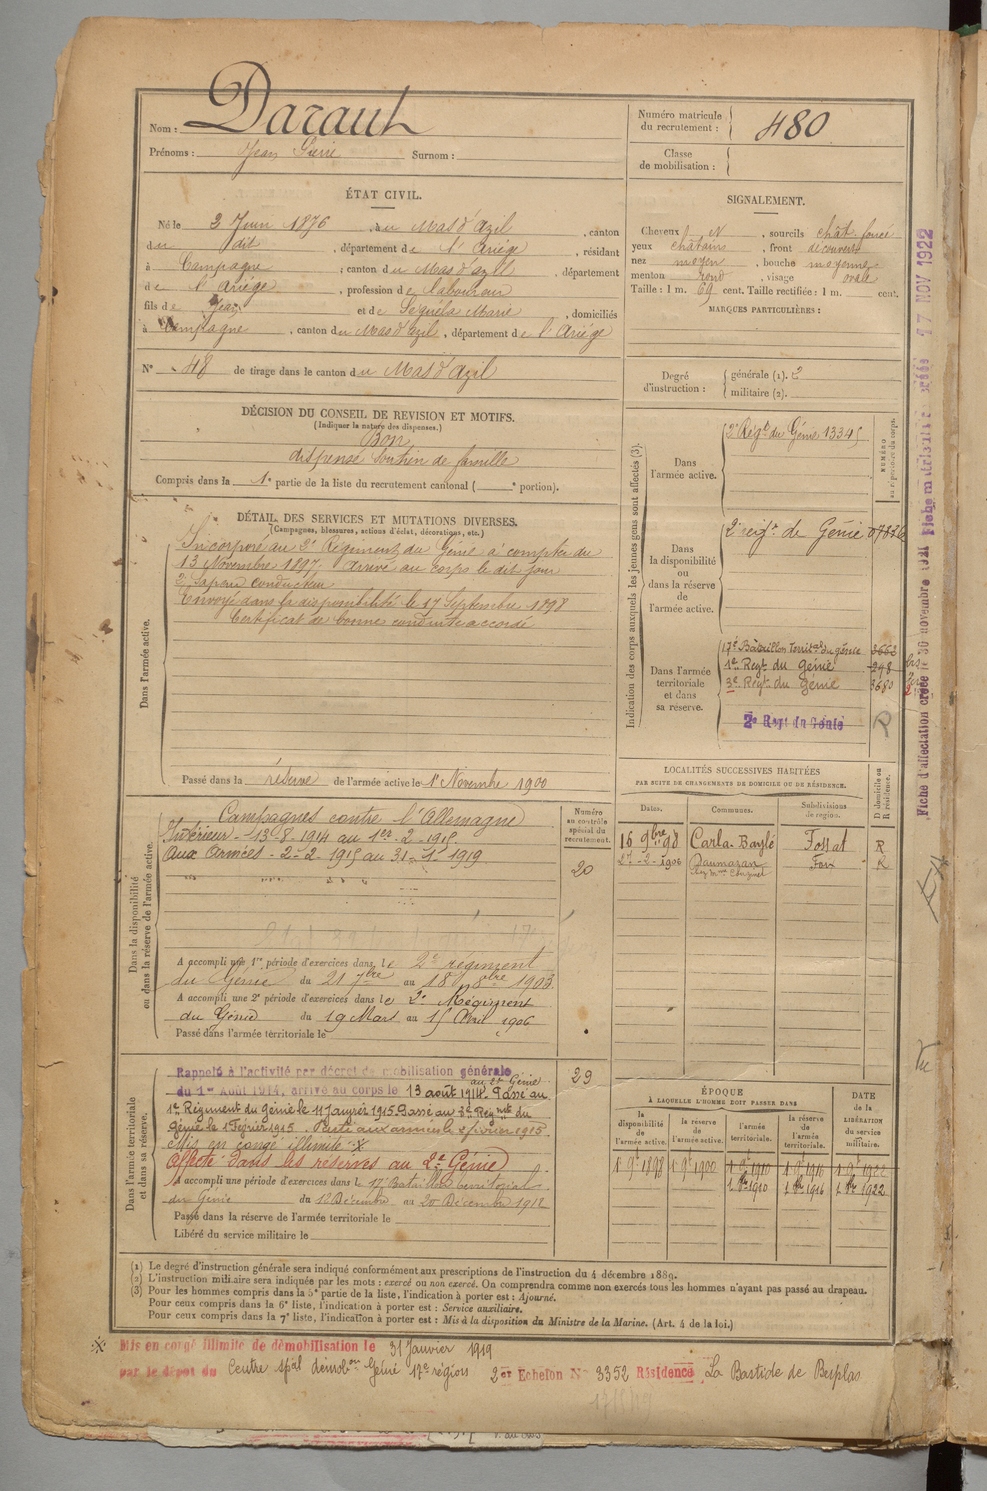 Nom : Daraut
Prénoms : Jean Pierre Surnom :
Numéro matricule du recrutement : 480
Classe de mobilisation :
ÉTAT CIVIL.
Né le 2 Juin 1876, à u Mas d'Azil, canton
du dit, département de l'Ariége, résidant
à Campagne, canton du Mas d'azil, département
de l'Ariége, profession de laboureur
fils de Jean et de Séguéla Marie, domiciliés
à Campagne, canton du Mas d'azil, département de l'Ariége
N° 48 de tirage dans le canton du Mas d'Azil
SIGNALEMENT.
Cheveux N, sourcils chât. foncé
yeux châtains, front découvert
nez moyen, bouche moyenne
menton rond, visage ovale
Taille : 1 m. 69 cent. Taille rectifiée : 1 m. cent.
MARQUES PARTICULIÈRES :
Degré d'instruction : générale (1). 2
militaire (2).
DÉCISION DU CONSEIL DE REVISION ET MOTIFS.
(Indiquer la nature des dispenses.)
Bon
dispensé Soutien de famille
Compris dans la 1e partie de la liste du recrutement cantonal ( e portion).
DÉTAIL DES SERVICES ET MUTATIONS DIVERSES.
(Campagnes, blessures, actions d'éclat, décorations, etc.)
Dans l'armée active.
Incorporé au 2e Régiment du Génie à compter du
13 Novembre 1897. Arrivé au corps le dit jour
2e Sapeur conducteur
Envoyé dans la disponibilité le 17 Septembre 1898
Certificat de bonne conduite accordé
Passé dans la réserve de l'armée active le 1er Novembre 1900
Indication des corps auxquels les jeunes gens sont affectés (3).
NUMÉRO au répertoire du corps.
Dans l'armée active.
2e Régt du Génie 13345
Dans la disponibilité ou dans la réserve de l'armée active.
2e régt de Génie 07826
Dans l'armée territoriale et dans sa réserve.
17e Bataillon territal du génie 3662
1er Regt du génie 248
3e Regt du Génie 3680
2e Regt du Génie
R
Dans la disponibilité ou dans la réserve de l'armée active.
Campagnes contre l'Allemagne
Intérieur - 13-8-1914 au 1er-2-1915
Aux Armées - 2-2-1915 au 31-1-1919
Numéro au contrôle spécial du recrutement.
20
A accompli une 1re période d'exercices dans le 2e régiment
du Génie du 21 7bre au 18 8bre 1903
A accompli une 2e période d'exercices dans le 2e Régiment
du Génie du 19 Mars au 15 Avril 1906
Passé dans l'armée territoriale le
LOCALITÉS SUCCESSIVES HABITÉES
PAR SUITE DE CHANGEMENTS DE DOMICILE OU DE RÉSIDENCE.
Dates. Communes. Subdivisions de région. D domicile ou R résidence.
16 9bre 98 Carla-Baylé Fossat R
27-2-1906 Daumazan Foix R
Dans l'armée territoriale et dans sa réserve.
Rappelé à l'activité par décret de mobilisation générale
du 1er Août 1914, arrivé au corps le 13 août 1914. Passé au
au 2e Génie
1er Régiment du génie le 11 Janvier 1915. Passé au 2e Régmte du
génie le 1 Février 1915. Parti aux armées le 2 février 1915
Mis en congé illimité X
Affecté dans les réserves au 2e Génie
A accompli une période d'exercices dans le 17e Bataillon territorial
du Génie du 12 Décembre au 20 Décembre 1912
Passé dans la réserve de l'armée territoriale le
Libéré du service militaire le
29
ÉPOQUE
À LAQUELLE L'HOMME DOIT PASSER DANS
la disponibilité de l'armée active.
la réserve de l'armée active.
l'armée territoriale.
la réserve de l'armée territoriale.
DATE de la LIBÉRATION du service militaire.
1 9e 1898 1 9e 1900 1 9e 1910 1 9e 1916 1 9e 1922
1 8re 1910 1 8re 1916 1 8re 1922
(1) Le degré d'instruction générale sera indiqué conformément aux prescriptions de l'instruction du 4 décembre 1889.
(2) L'instruction militaire sera indiquée par les mots : exercé ou non exercé. On comprendra comme non exercés tous les hommes n'ayant pas passé au drapeau.
(3) Pour les hommes compris dans la 5e partie de la liste, l'indication à porter est : Ajourné.
Pour ceux compris dans la 6e liste, l'indication à porter est : Service auxiliaire.
Pour ceux compris dans la 7e liste, l'indication à porter est : Mis à la disposition du Ministre de la Marine. (Art. 4 de la loi.)
X Mis en congé illimité de démobilisation le 31 Janvier 1919
par le dépôt du Centre spal démobon Génie 17e région 2er Echelon N° 3352 Résidence La Bastide de Besplas
Fiche d'affectation créée le 30 novembre 1921
17 NOV 1922